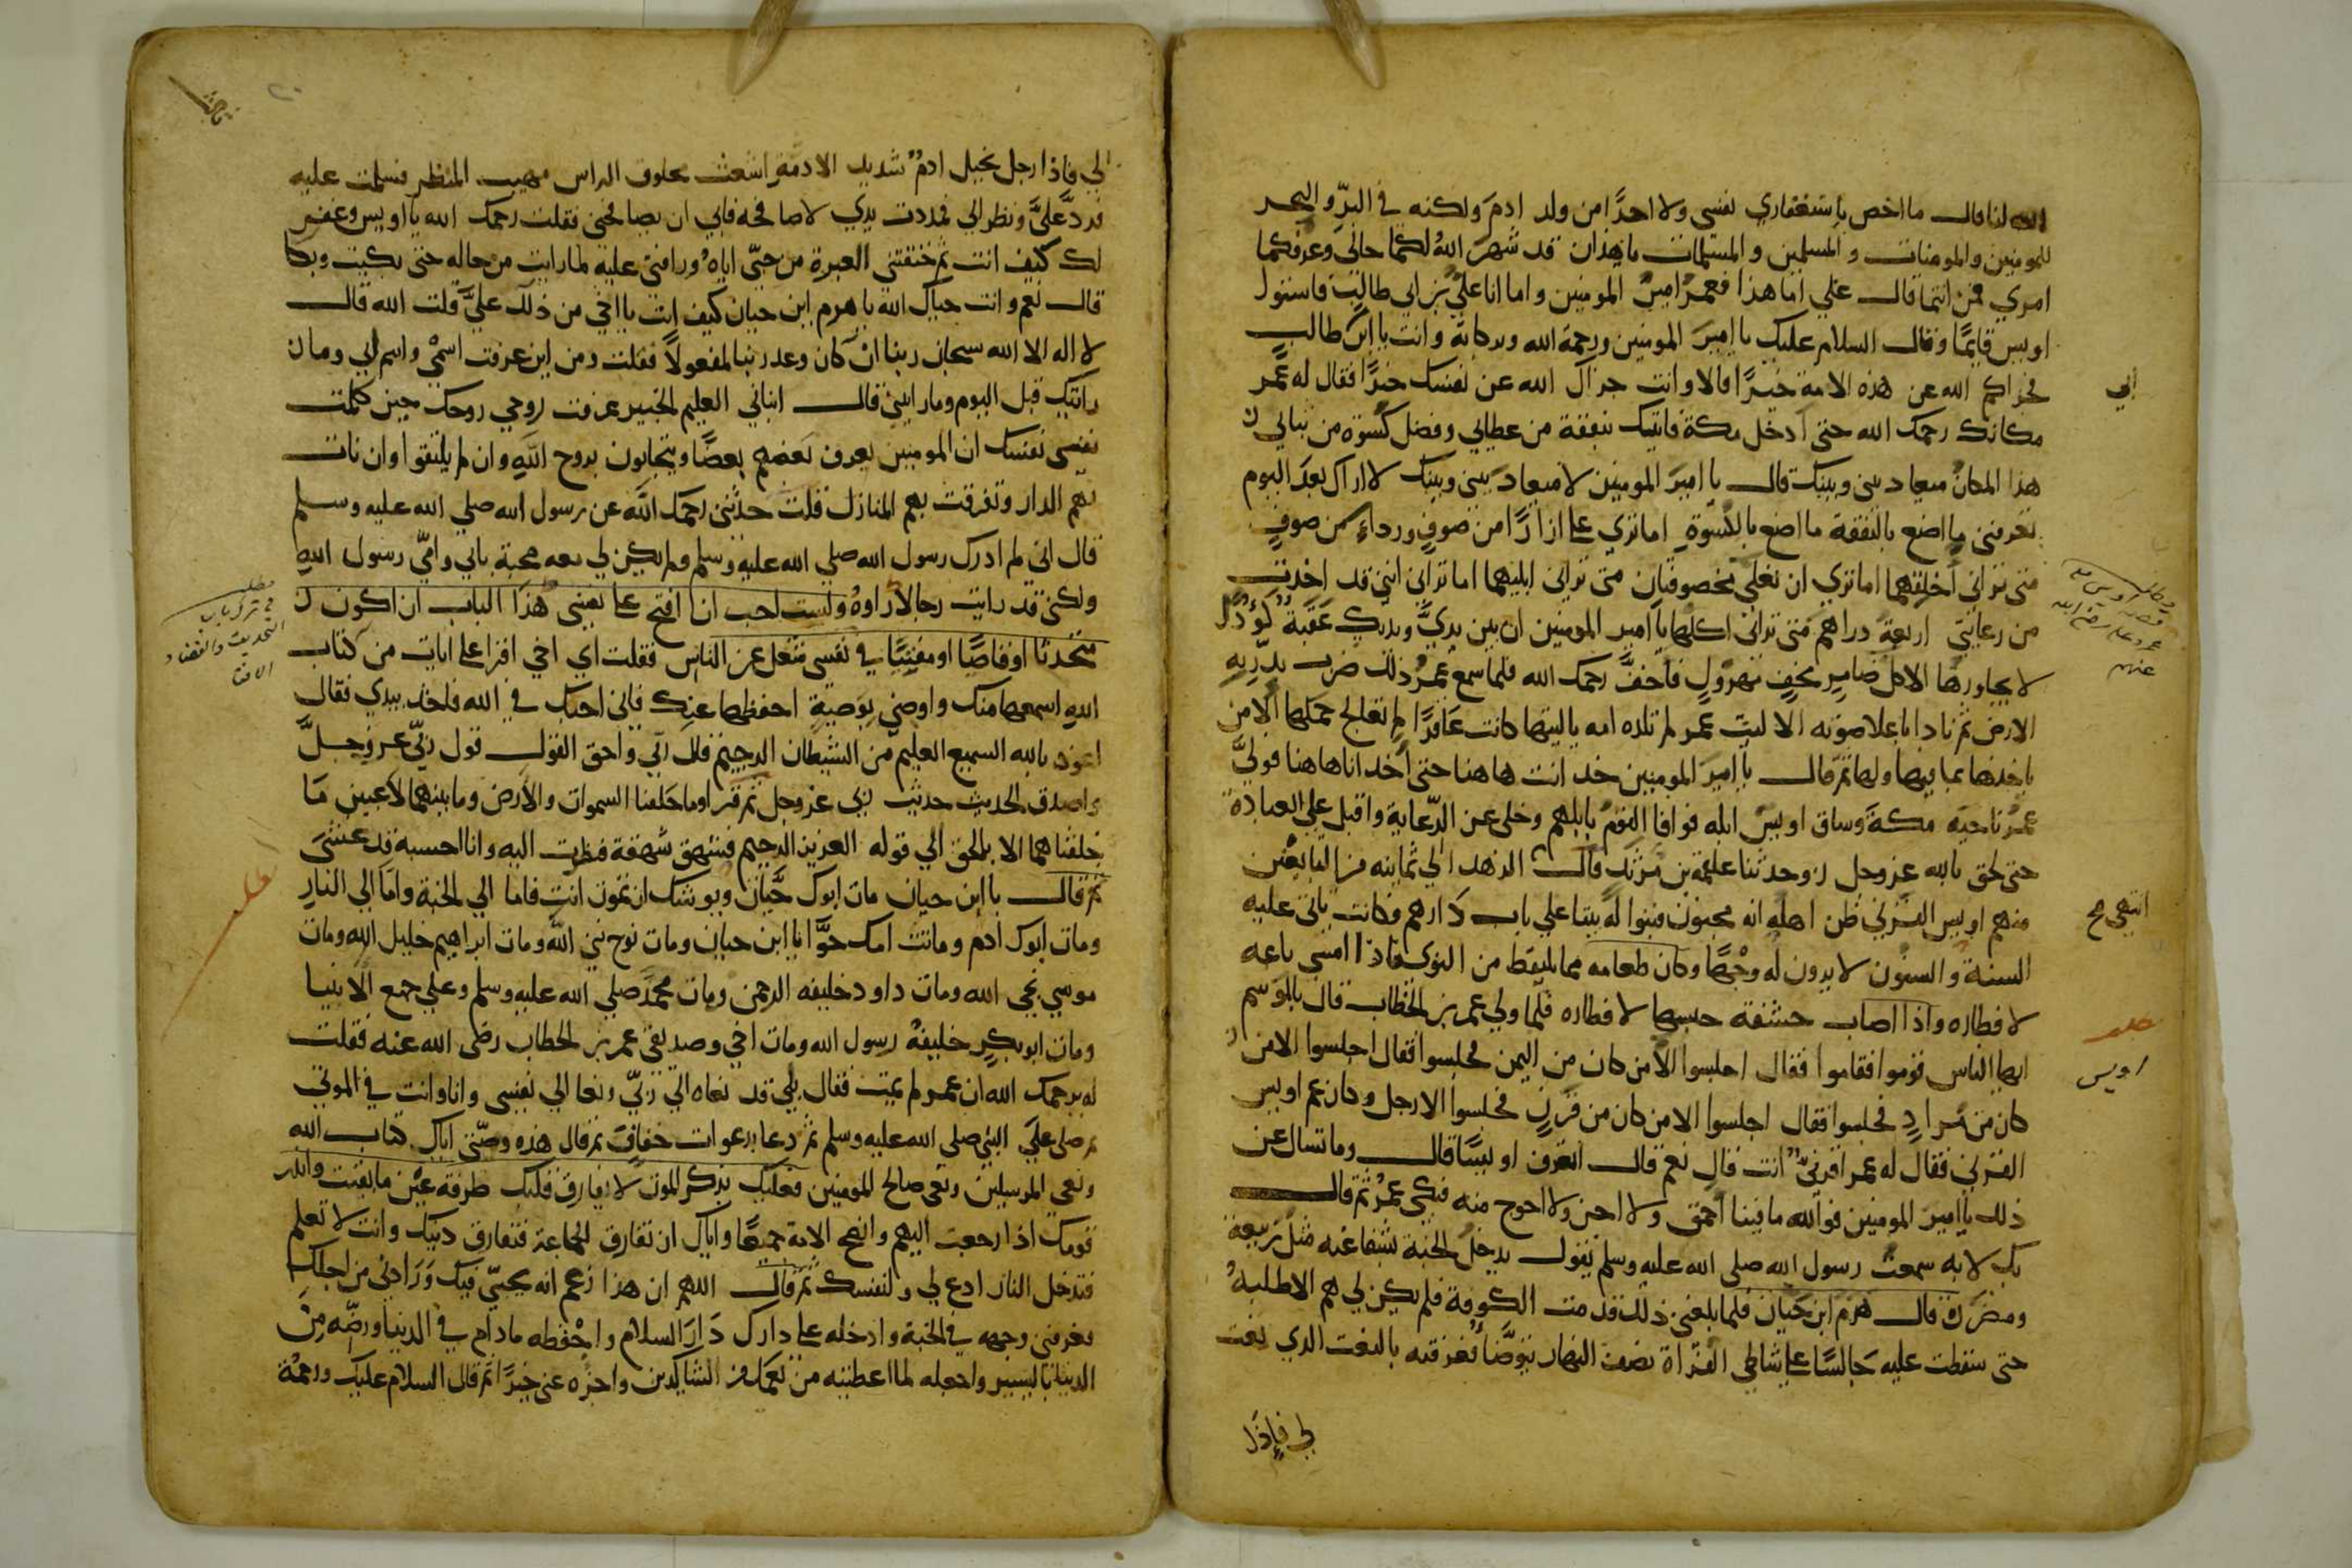 الله لنا قال ما اخص باستغفاري نفسي ولا احدًا من ولد ادم ولكنه في البرّ والبحر
للمومنين والمومنات والمسلمين والمسلمات يا هذان قد شهر الله لكما حالي وعرفكما
امري فمن انتما قال علي اما هذا فعمر امير المومنين واما انا علي بن ابي طالب فاستول
اويس قايمًا وقال السلام عليك يا امير المومنين ورحمة الله وبركاته وانت يا ابن طالب
ابي
فجزاكم الله عن هذه الامة خيرًا قالا وانت جزاك الله عن نفسك خيرًا فقال له عمر
مكانك رحمك الله حتى ادخل مكة فاتيك بنفقة من عطايي وفضل كسوة من ثيابي
هذا المكان ميعاد بيني وبينك قال يا امير المومنين لا ميعاد بيني وبينك لا اراك بعد اليوم
تعرفني ما اصنع بالنفقة ما اصنع بالكسوة اما تري علي ازارًا من صوف ورداء من صوف
متى تراني اخلقهما اما تري ان نعلي مخصوفتان متى تراني ابليهما اما تراني اني قد اخذت
من رعايتي اربعة دراهم متى تراني اكلها يا امير المومنين ان بين يديّ ويديك عقبة كؤدًا
لا يجاوزها الا كل ضامر مخف مهزول فاخف رحمك الله فلما سمع عمر ذلك ضرب بدرته
الارض ثم نادا باعلا صوته الا ليت عمر لم تلده امه يا ليتها كانت عاقرًا لم تعالج حملها الا من
ياخذها بما فيها ولها ثم قال يا امير المومنين خذ انت هاهنا حتى اخذ انا هاهنا فولي
عمر ناحية مكة وساق اويس ابله فوافا القوم بابلهم وخلى عن الرعاية واقبل علي العبادة
حتى لحق بالله عز وجل وحدثنا علقمة بن مرثد قال الزهد الي ثمانية من التابعين
انتهى صح
منهم اويس القرني ظن اهله انه مجنون فبنوا له بيتا علي باب دارهم فكانت تاتي عليه
السنة والسنون لا يرون له وجهًا وكان طعامه مما يلتقط من النوي فاذا امسي باعه
لافطاره واذا اصاب حشفة حبسها لافطاره فلما ولي عمر بن الخطاب قال بالموسم
ايها الناس قوموا فقاموا فقال اجلسوا الا من كان من اليمن فجلسوا فقال اجلسوا الا من
اويس
كان من مراد فجلسوا فقال اجلسوا الا من كان من قرن فجلسوا الا رجل وكان عم اويس
القرني فقال له عمر اقرنيّ انت قال نعم قال اتعرف اويسًا قال وما تسال عن
ذلك يا امير المومنين فوالله ما فينا احمق ولا اجن ولا احوج منه فبكى عمر ثم قال
بك لا به سمعت رسول الله صلى الله عليه وسلم يقول يدخل الجنة بشفاعته مثل ربيعة
ومضر قال هرم ابن حيان فلما بلغني ذلك قدمت الكوفة فلم يكن لي هم الا طلبه
حتى سقطت عليه جالسًا على شاطي الفراة نصف النهار يتوضأ فعرفته بالنعت الذي نعت
لي فاذا
الي فاذا رجل نحيل ادم شديد الادمة اشعث محلوق الراس مهيب المنظر فسلمت عليه
فرد عليَّ ونظر الي فمددت يدي لاصافحه فابي ان يصافحني فقلت رحمك الله يا اويس وغفر
لك كيف انت ثم خنقتني العبرة من حبّي اياه ورافتي عليه لما رايت من حاله حتى بكيت وبكا
قال نعم وانت حياك الله يا هرم ابن حيان كيف انت يا اخي من ذلك عليَّ قلت الله قال
لا اله الا الله سبحان ربنا ان كان وعد ربنا لمفعولا فقلت ومن اين عرفت اسمي واسم ابي وما ان
رايتك قبل اليوم وما رايتني قال انباني العليم الخبير عرفت روحي روحك حين كلمت
نفسي نفسك ان المومنين يعرف بعضهم بعضًا ويتحابون بروح الله وان لم يلتقوا وان نات
بهم الدار وتفرقت بهم المنازل قلت حدثني رحمك الله عن رسول الله صلي الله عليه وسلم
قال اني لم ادرك رسول الله صلي الله عليه وسلم ولم يكن لي معه صحبة بابي وامّي رسول الله
ولكني قد رايت رجالا راوه ولست احب ان افتح علي نفسي هذا الباب ان اكون
محدثا او قاصًا او مفتيًا في نفسي شغل عن الناس فقلت اي اخي اقرا علي ايات من كتاب
الله اسمعها منك واوصني بوصية احفظها عنك فاني احبك في الله فاخذ بيدي فقال
اعوذ بالله السميع العليم من الشيطان الرجيم قال ربي واحق القول قول ربّي عز وجل
واصدق الحديث حديث ربي عز وجل ثم قرا وما خلقنا السموات والارض وما بينهما لاعبين ما
خلقناهما الا بالحق الي قوله العزيز الرحيم فشهق شهقة فنظرت اليه وانا احسبه قد غشي
ثم قال يا ابن حيان مات ابوك حيان ويوشك ان تموت انت فاما الي الجنة واما الي النار
ومات ابوك ادم وماتت امك حوّا يا ابن حيان ومات نوح نبي الله ومات ابراهيم خليل الله ومات
موسي نجي الله ومات داود خليفه الرحمن ومات محمد صلي الله عليه وسلم وعلي جميع الانبيا
ومات ابو بكر خليفة رسول الله ومات اخي وصديقي عمر بن الخطاب رضي الله عنه فقلت
له يرحمك الله ان عمر لم يمت فقال بلي قد نعاه الي ربّي ونعا الي نفسي وانا وانت في الموتي
ثم صلى علي النبي صلى الله عليه وسلم ثم دعا بدعوات خفاف ثم قال هذه وصيّتي اياك كتاب الله
ونعي المرسلين ونعي صالح المومنين فعليك بذكر الموت لا يفارق قلبك طرفة عين ما بقيت وانذر
قومك اذا رجعت اليهم وانصح الامة جميعًا واياك ان تفارق الجماعة فتفارق دينك وانت لا تعلم
فتدخل النار ادع لي ولنفسك ثم قال اللهم ان هذا زعم انه يحبّني فيك وزارني من اجلك
فعرفني وجهه في الجنة وادخله علي دارك دار السلام واحفظه ما دام في الدنيا ورضّه من
الدنيا باليسير واجعله لما اعطيته من نعمك من الشاكرين واجزه عني خيرًا ثم قال السلام عليك ورحمة